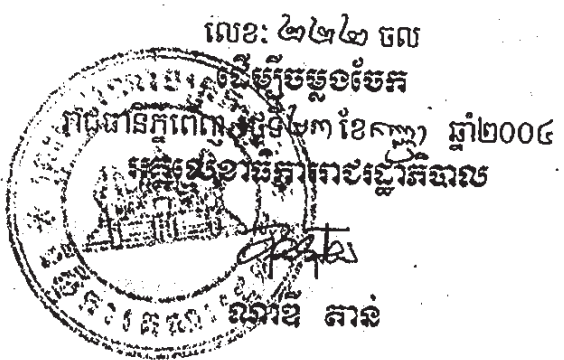 លេខៈ ២២២ ចល
ដើម្បីចម្លងចែក
រាជធានីភ្នំពេញ ថ្ងៃទី២៣ ខែកញ្ញា ឆ្នាំ២០០៤
អគ្គលេខាធិការរាជរដ្ឋាភិបាល
ណាឌី តាន់